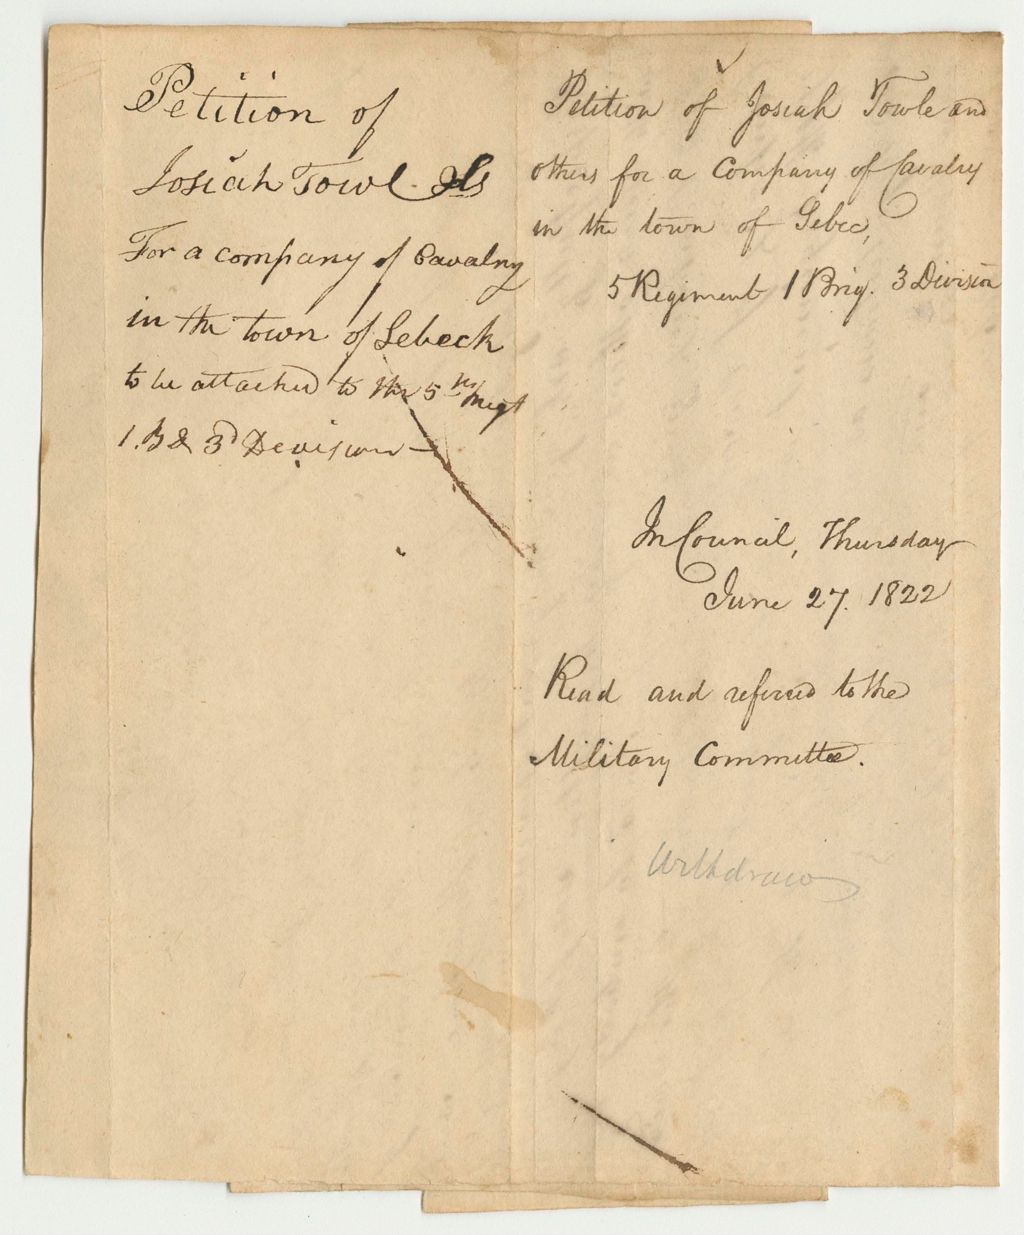 Petition of
Josiah Towl
For a company of Cavalry
in the town of Sebeck
to be attached to the 5th Regt
1. B & 3d Devision —
Petition of Josiah Towle and
others for a Company of Cavalry
in the town of Sebec,
5 Regiment 1 Brig. 3 Division
In Council, Thursday
June 27. 1822
Read and referred to the
Military Committee.
Withdraw